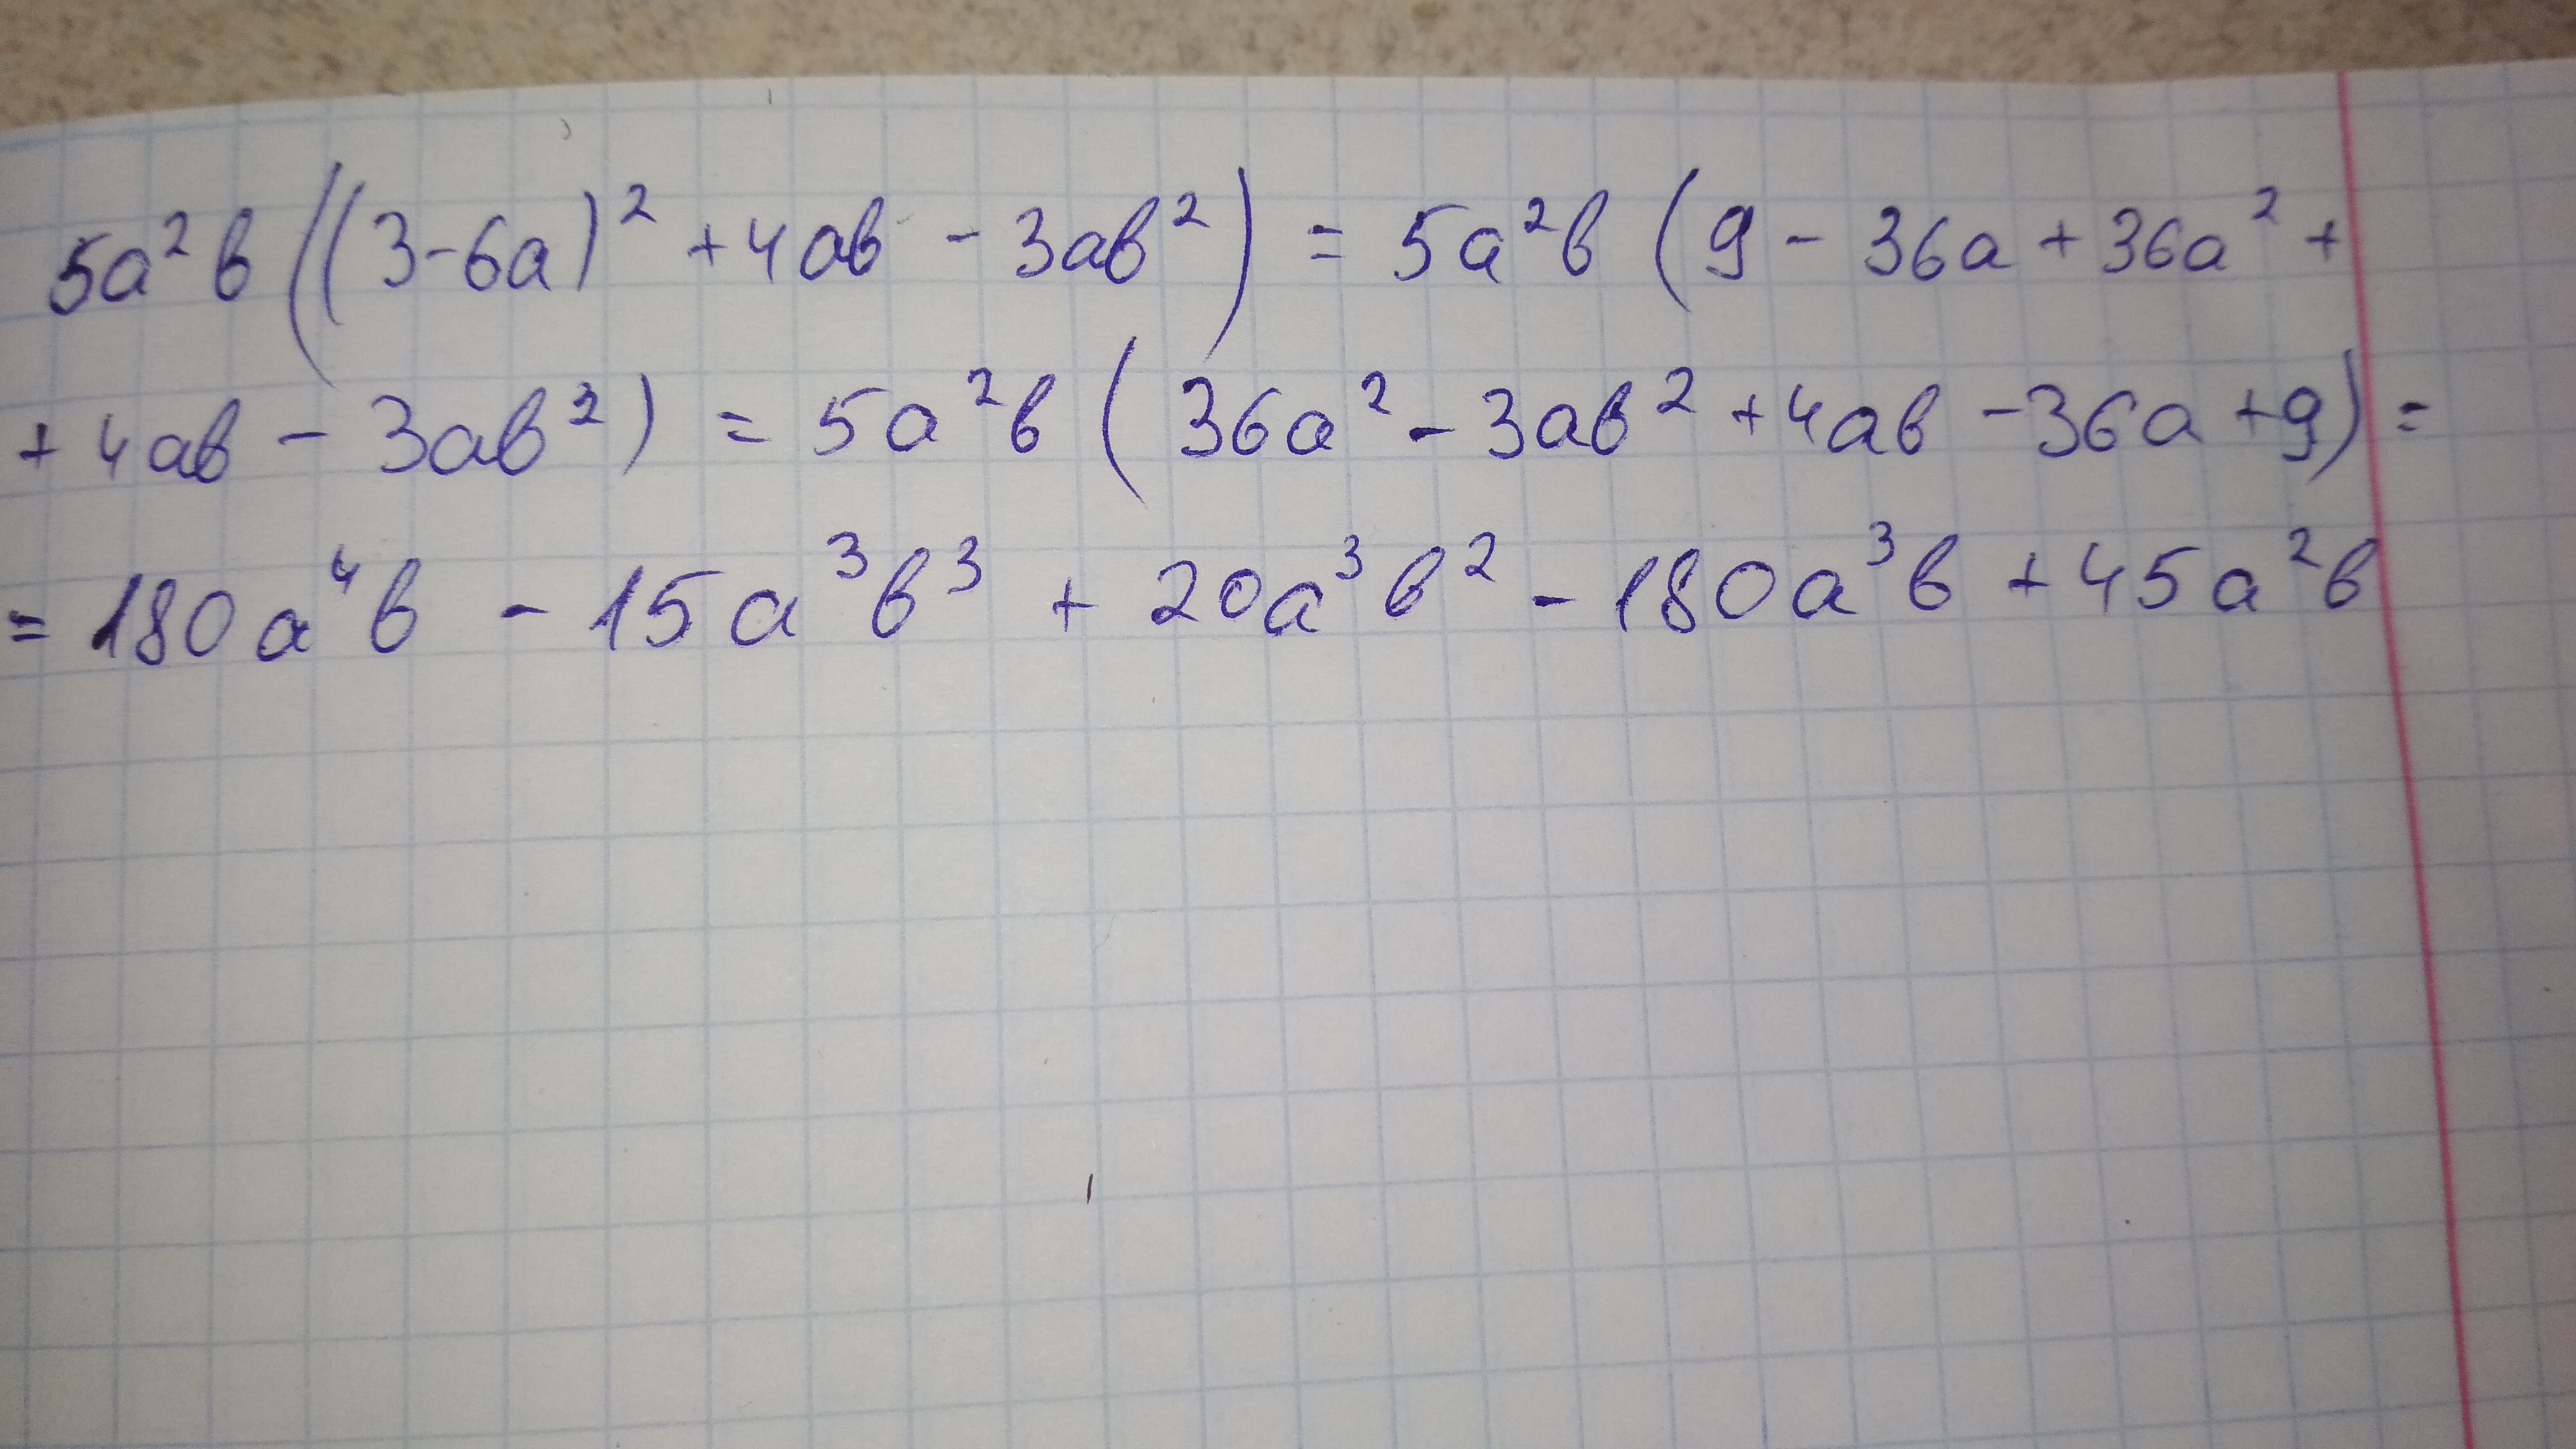 5a²b((3-6a)²+4ab-3ab²)=5a²b(9-36a+36a²+
+4ab-3ab²)=5a²b(36a²-3ab²+4ab-36a+9)=
=180a⁴b-15a³b³+20a³b²-180a³b+45a²b